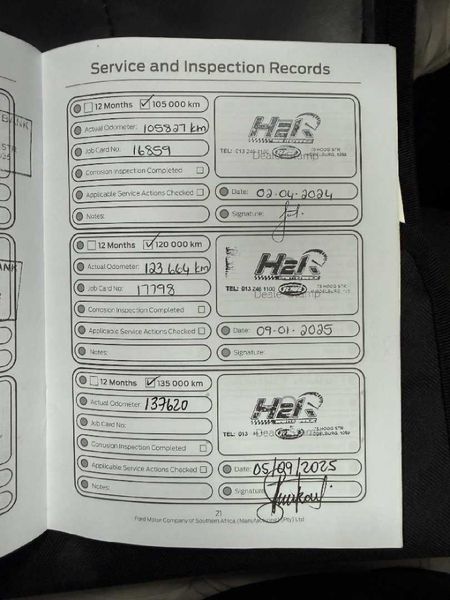 Service and Inspection Records
12 Months 105 000 km
Actual Odometer: 105827 km
Job Card No: 16859
Corrosion Inspection Completed
Applicable Service Actions Checked
Notes:
H2R
TEL: 013 246 1100
Dealer Stamp
Date: 02-04-2024
Signature:
12 Months 120 000 km
Actual Odometer: 123 664 km
Job Card No: 17798
Corrosion Inspection Completed
Applicable Service Actions Checked
Notes:
H2R
TEL: 013 246 1100
Dealer Stamp
Date: 09-01-2025
Signature:
12 Months 135 000 km
Actual Odometer: 137620
Job Card No:
Corrosion Inspection Completed
Applicable Service Actions Checked
Notes:
H2R
TEL: 013
Dealer Stamp
Date: 05/09/2025
Signature:
21
Ford Motor Company of Southern Africa (Manufacturing) (Pty) Ltd